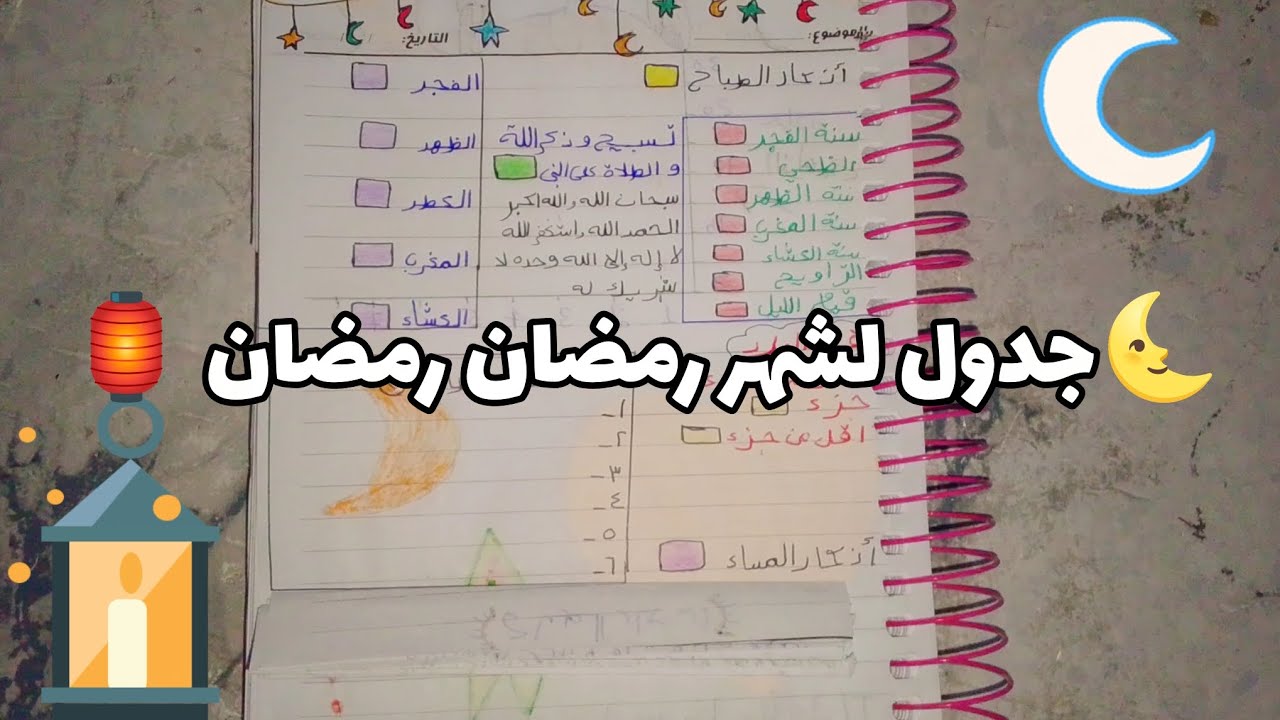 الموضوع:
التاريخ:
أذكار الصباح
الفجر
سنة الفجر
الضحى
سنة الظهر
سنة المغرب
سنة العشاء
التراويح
قيام الليل
تسبيح وذكر الله
و الصلاة على النبي
سبحان الله والله اكبر
الحمد الله واستغفر الله
لا إله إلا الله وحده لا
شريك له
الظهر
العصر
المغرب
العشاء
جدول لشهر رمضان رمضان
جزء
اقل من جزء
١-
٢-
٣-
٤-
٥-
٦-
أذكار المساء